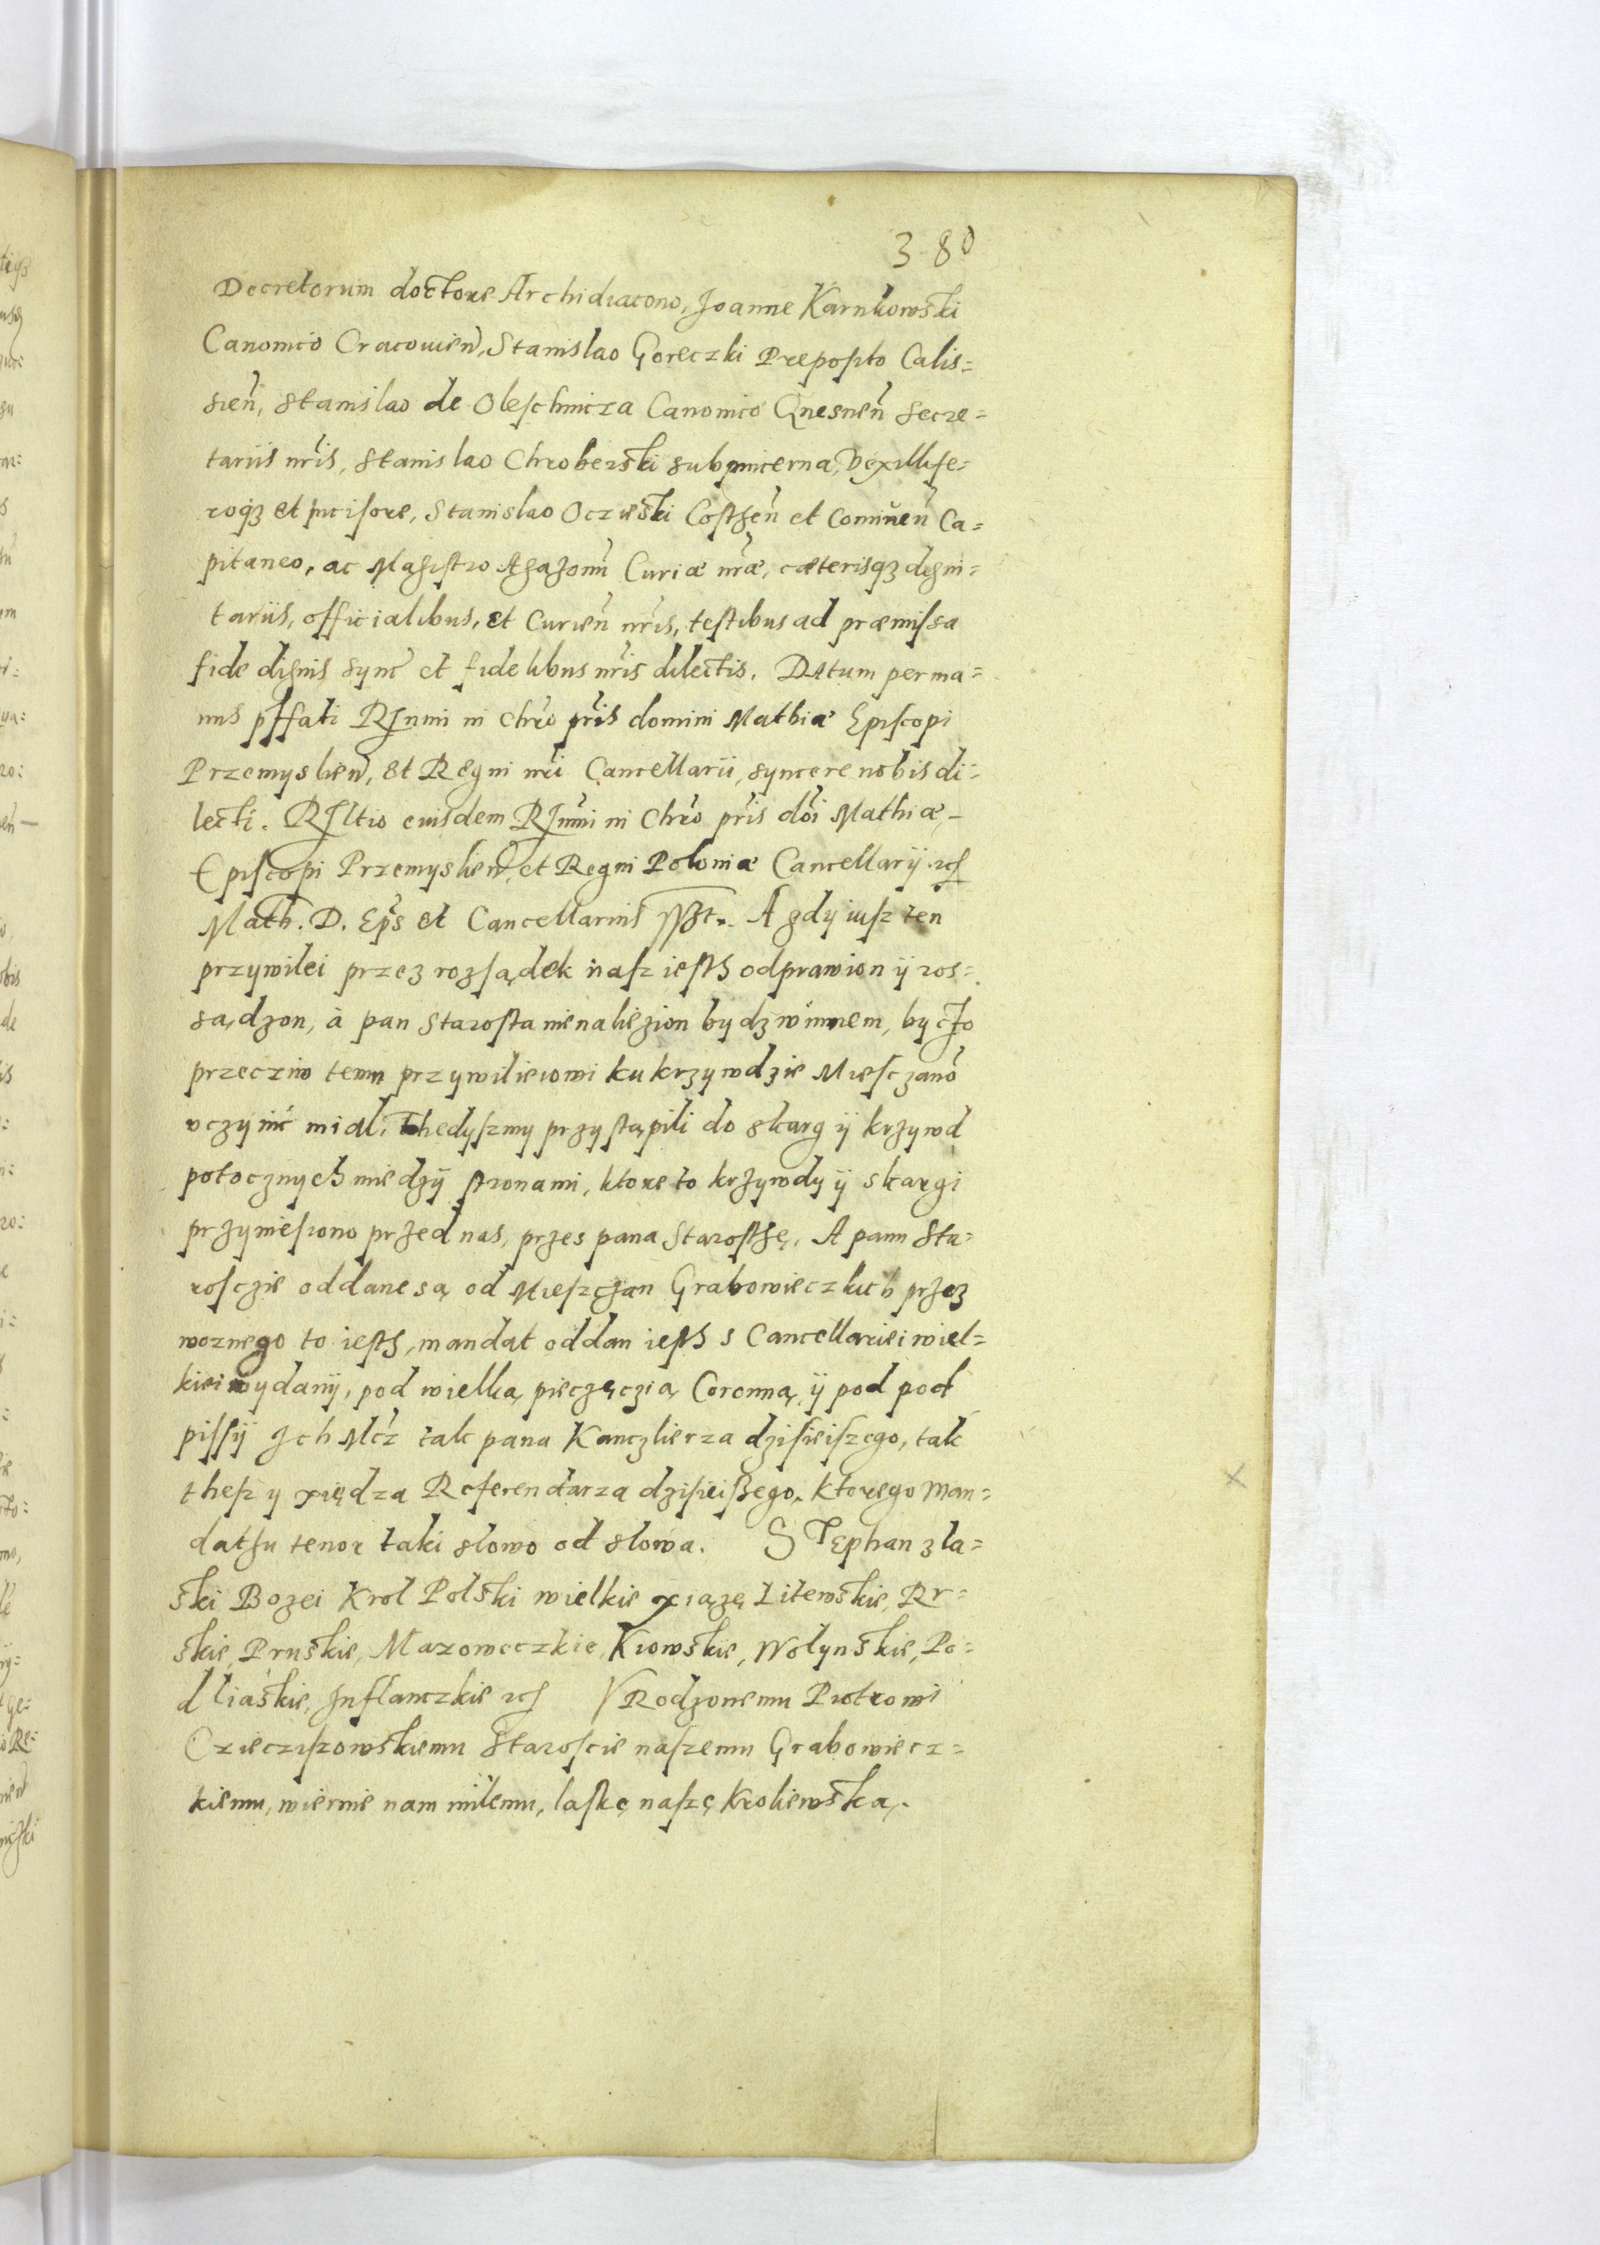 380
Decretorum doctore Archidiacono, Joanne Karnkowski
Canonico Cracouien̄, Stanislao Goreczki Preposito Calis=
sien̄, Stanislao de Oleschnicza Canonico Gnesnen̄ Secre=
tariis nr̄is, Stanislao Chroberski subpincerna, Vexillife=
roqȝ et incisore, Stanislao Oczieski Costhen̄ et Comin̄en̄ Ca=
pitaneo, ac Magistro Agazonū Curiæ nr̄æ, cæterisqȝ digni=
tariis, officialibus, et Curien̄ nr̄is, testibus ad præmissa
fide dignis sync̄ et fidelibus nr̄is dilectis. Datum per ma=
nus pffati Rſnmi in Chro pr̄is domini Mathiæ Episcopi
Przemyslien̄, et Regni nr̄i Cancellarii, syncere nobis di=
lecti. Rſltio eiusdem Rſnmi in Chro pr̄is dōi Mathiæ, –
Episcopi Przemyslien̄, et Regni Poloniæ Cancellarij
Math. D. Ep̄s et Cancellarius sszt. A gdy iusz ten
przywilei przez rozsądek nasz iesth odprawion ÿ ros=
sądzon, à pan Starosta nienaliezion bydz winnem, by czo
przecziw temu przywilieiowi ku krzywdzie Miesczanō
vczynić mial, Thedyszmy przystąpili do skarg ÿ krzywd
potocznych miedzÿ stronami, ktore to krzywdy ÿ skargi
przyniesiono przed nas, przes pana Starosthę, A panu Sta=
rosczie oddane są od Mieszczan Grabowieczkich przez
woznego to iesth, mandat oddan iesth s Cancellariei wiel=
kiei wydanÿ, pod wielką pieczęczią Coronną ÿ pod pod
pissÿ Ich Mc̄z tak pana Kanczlierza dzisieiszego, tak
thesz y xiędza Referendarza dzisieißego, Ktorego Man=
dathu tenor taki slowo od slowa. Stephan z la=
ski Bozei Krol Polski wielkie xiązę Litewskie, Rr=
skie, Pruskie, Mazoweczkie, Kiowskie, Wolynskie, Po=
dliaskie, Inflanczkie VRodzonemu Piotrowi
Czieciszowskiemu Staroscie naszemu Grabowiecz=
kiemu, wiernie nam milemu, laskę naszę Kroliewską.